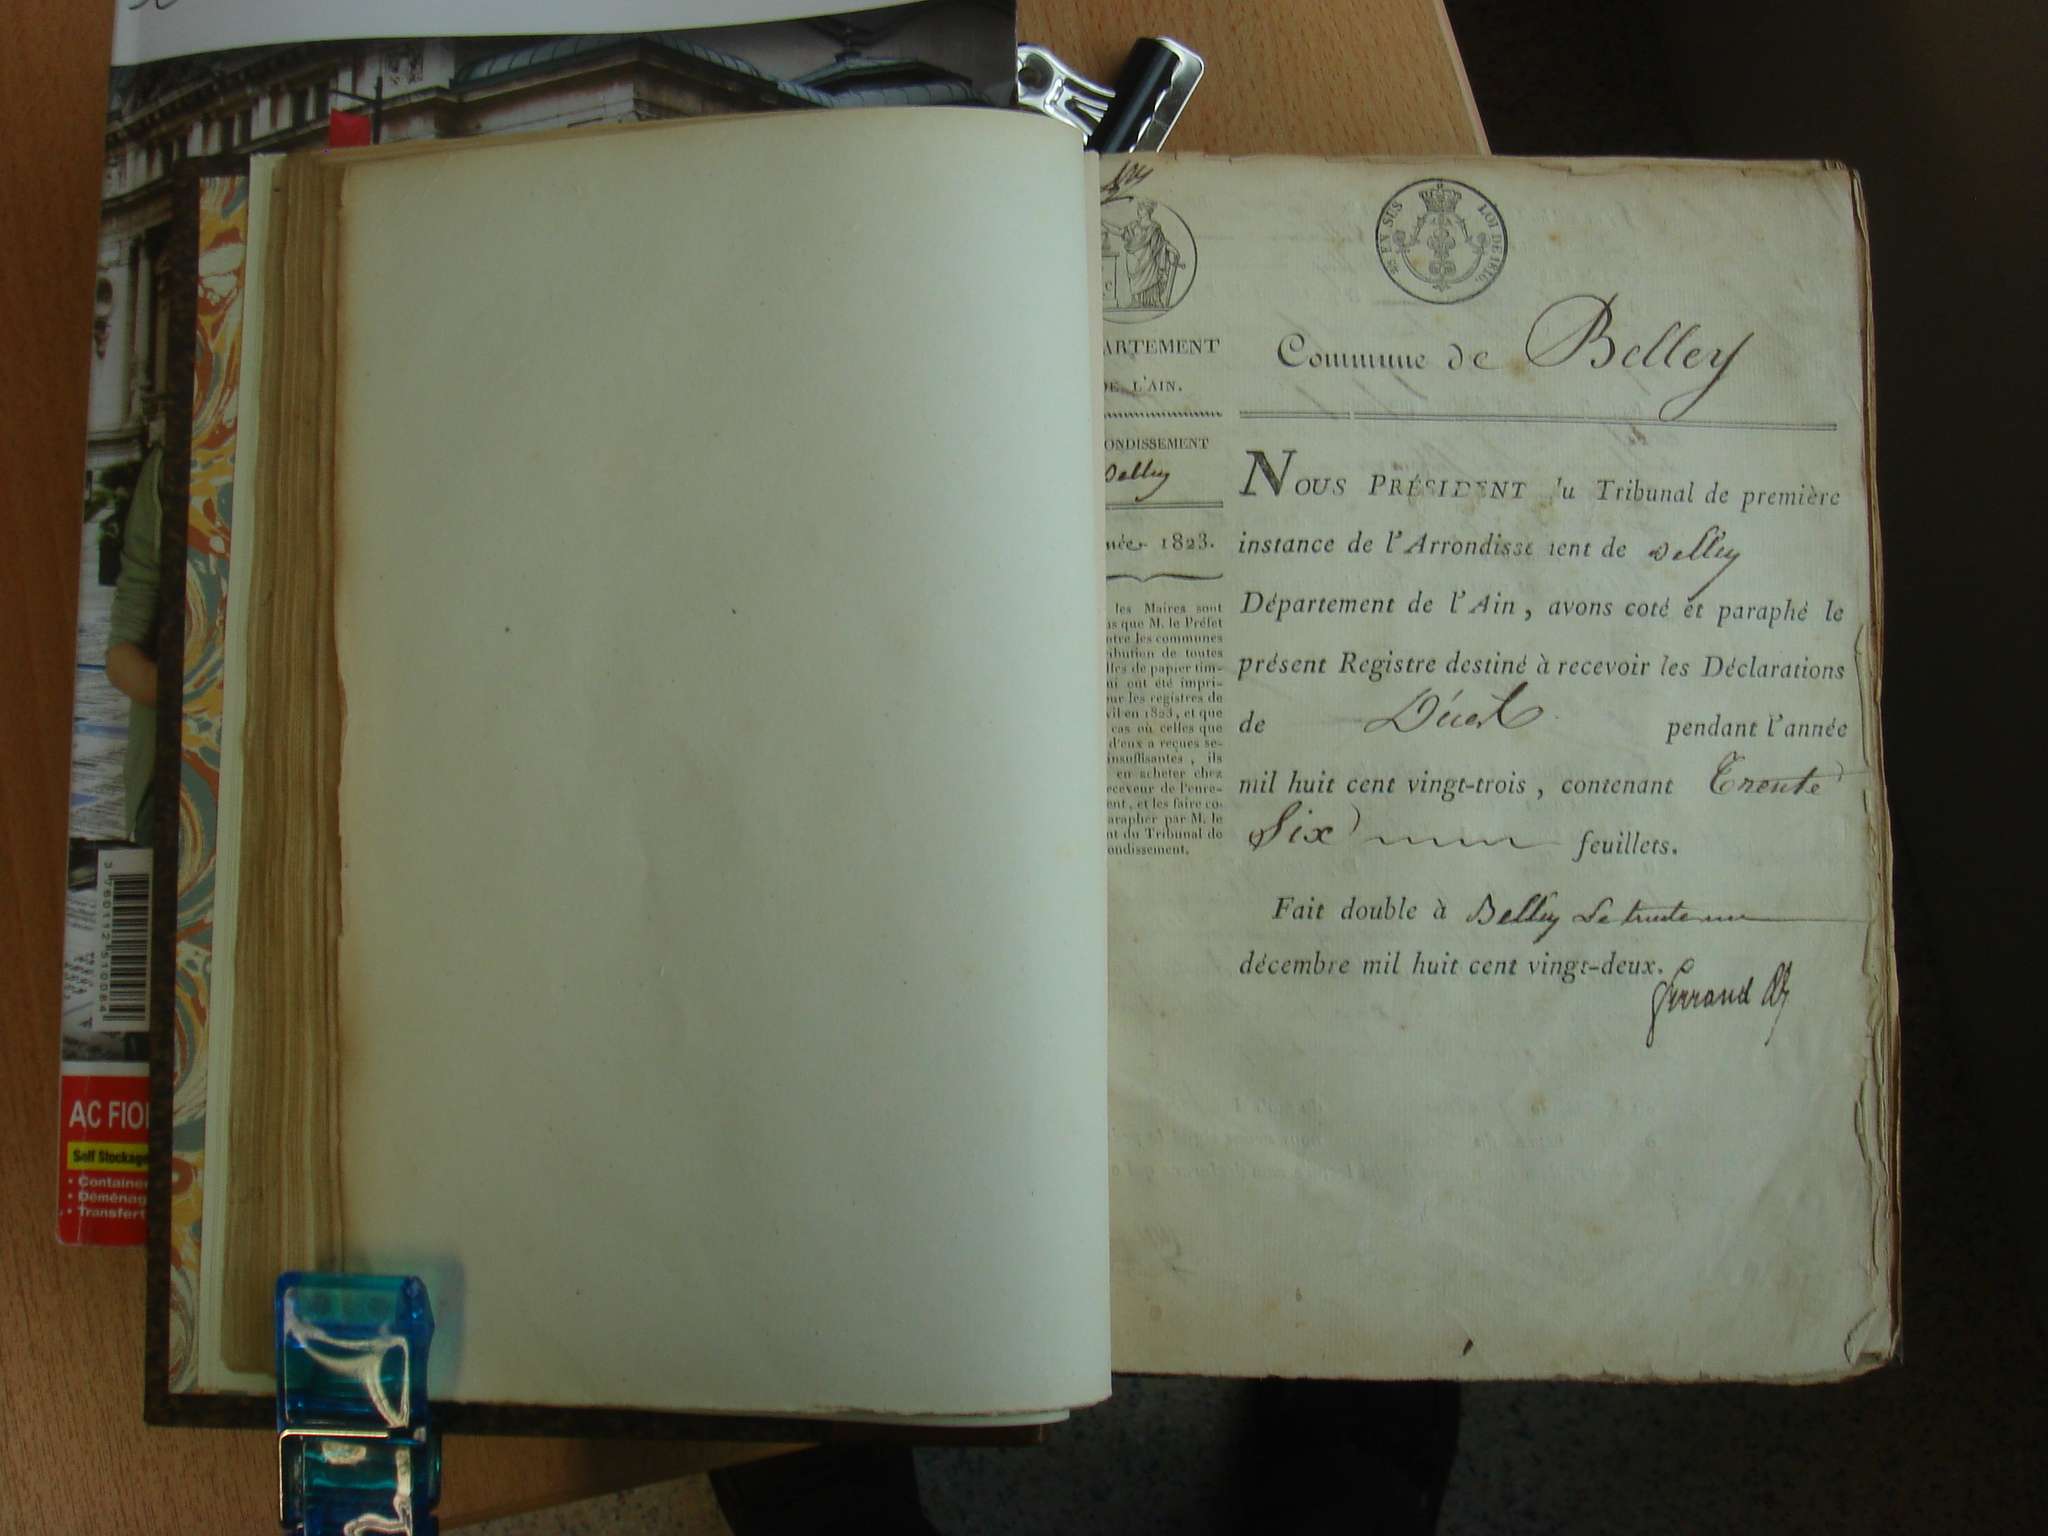 AC FIO
Self Stockage
• Containe
• Déménag
• Transfert
3 760112 510084
EN SUS LOI DE 1816.
ARTEMENT
DE L'AIN.
ONDISSEMENT
Belley
née 1823.
les Maires sont
as que M. le Préfet
ntre les communes
ribution de toutes
lles de papier tim-
ui ont été impri-
ur les registres de
vil en 1823, et que
cas où celles que
d'eux a reçues se-
insuffisantes, ils
en acheter chez
eceveur de l'enre-
ent, et les faire co-
arapher par M. le
nt du Tribunal de
ondissement.
Commune de Belley
NOUS PRÉSIDENT du Tribunal de première
instance de l'Arrondissement de Belley
Département de l'Ain, avons coté et paraphé le
présent Registre destiné à recevoir les Déclarations
de Décès pendant l'année
mil huit cent vingt-trois, contenant Trente
Six feuillets.
Fait double à Belley Le trente un
décembre mil huit cent vingt-deux.